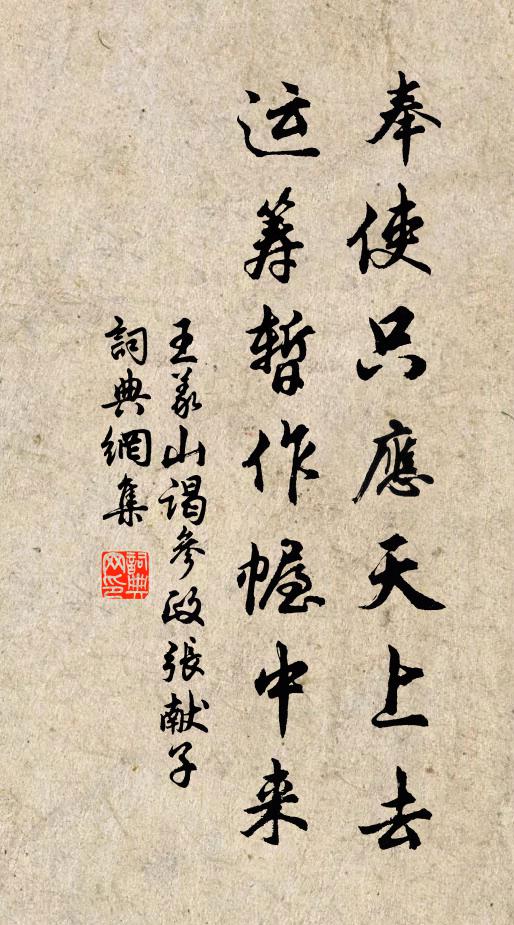 奉使只應天上去
运筹暂作幄中来
王義山謁參政張献子
詞典網集
詞典网印